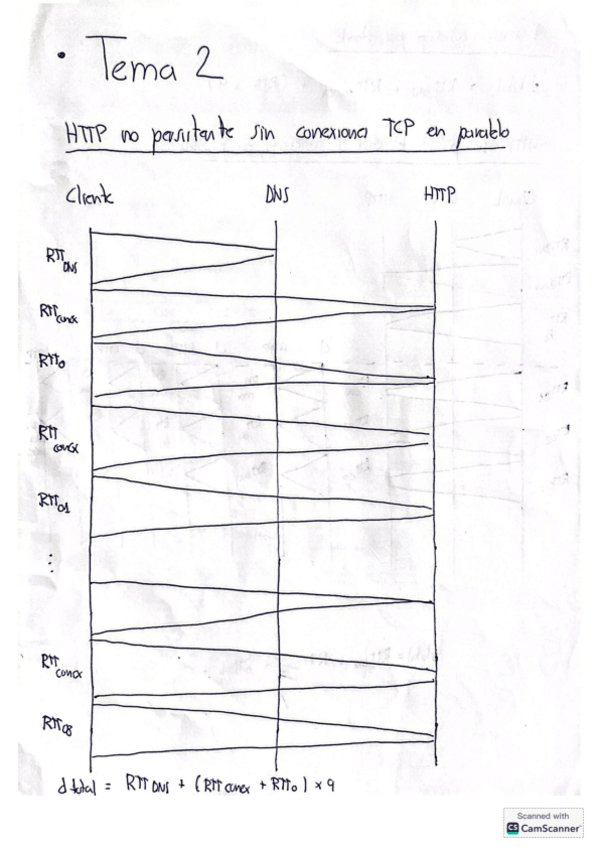 • Tema 2
HTTP no persistante sin conexiones TCP en paralelo
Cliente DNS HTTP
RTT DNS
RTT conex
RTT0
RTT conex
RTT01
⋮
RTT conex
RTT08
d total = RTT DNS + (RTT conex + RTT0) × 9
Scanned with
CS CamScanner